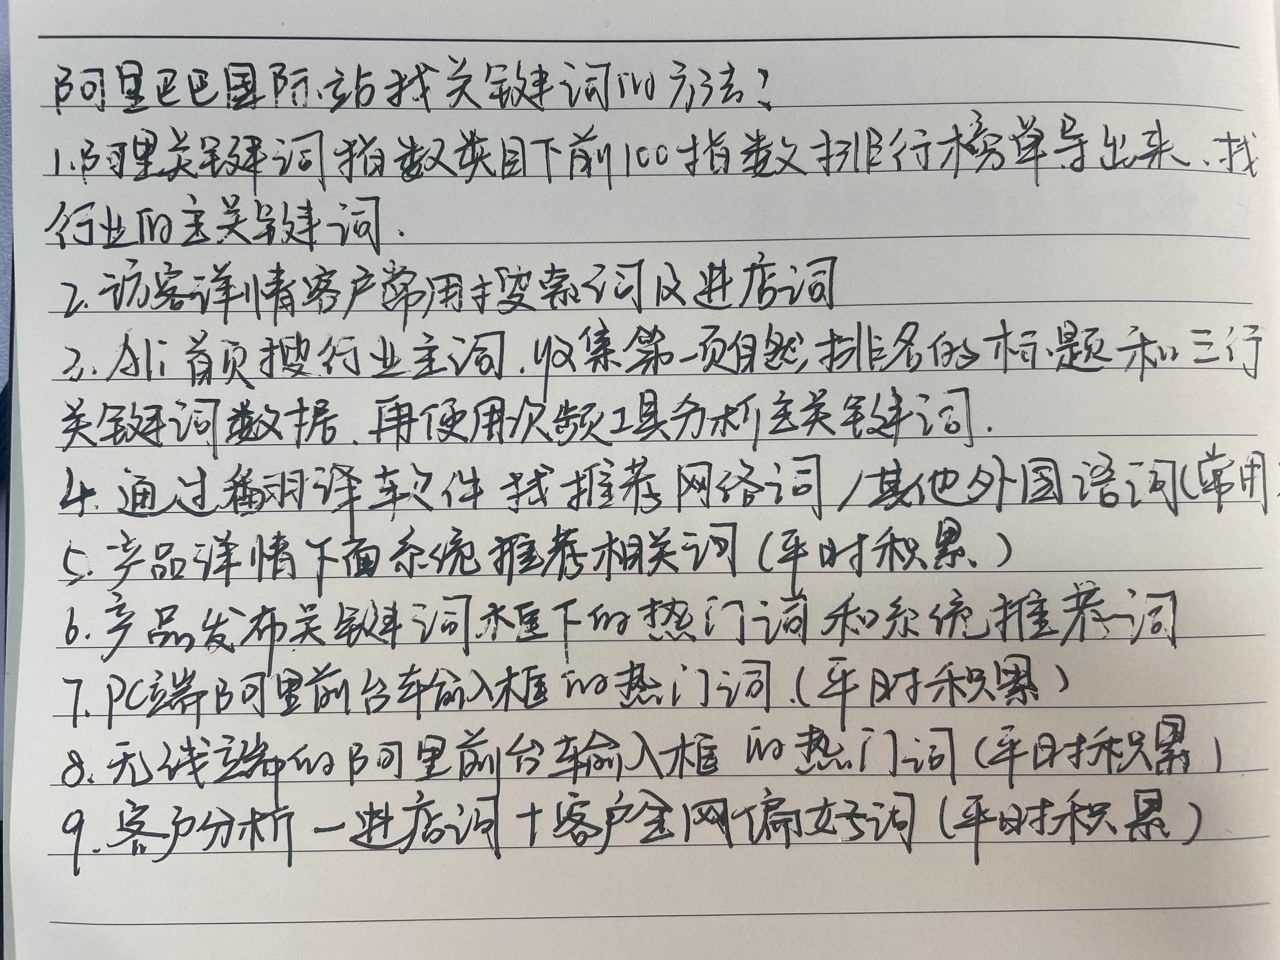 阿里巴巴国际站找关键词的方法?
1.阿里关键词指数类目下前100指数排行榜单导出来、找
行业的主关键词.
2.访客详情客户常用搜索词及进店词
3.Ali首页搜行业主词.收集第一页自然排名的标题和三行
关键词数据、再使用次频工具分析主关键词.
4.通过翻译软件找推荐网络词/其他外国语词(常用
5.产品详情下面系统推荐相关词(平时积累、)
6.产品发布关键词框下的热门词和系统推荐词
7.PC端阿里前台输入框的热门词.(平时积累)
8.无线端的阿里前台输入框的热门词(平时积累)
9.客户分析一进店词+客户全网偏好词(平时积累)